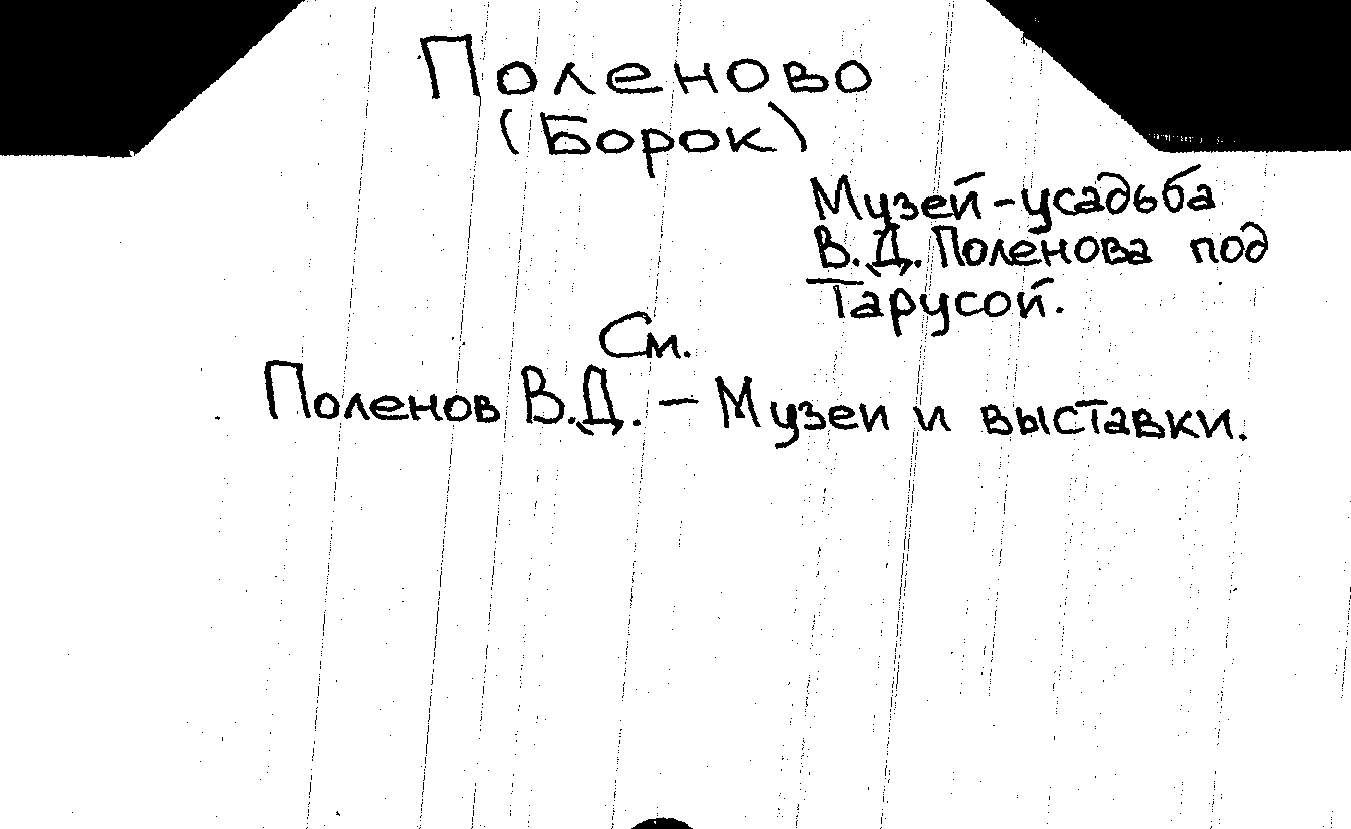 Поленово
(Борок)
Музей-усадьба
В.Д. Поленова под
Тарусой.
См.
Поленов В.Д. – Музеи и выставки.